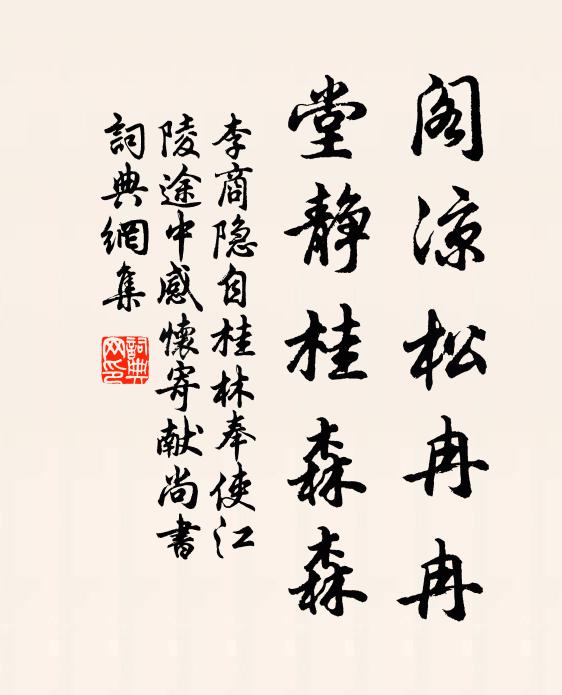 阁凉松冉冉
堂静桂森森
李商隐自桂林奉使江
陵途中感懷寄献尚書
詞典網集
詞典
网印